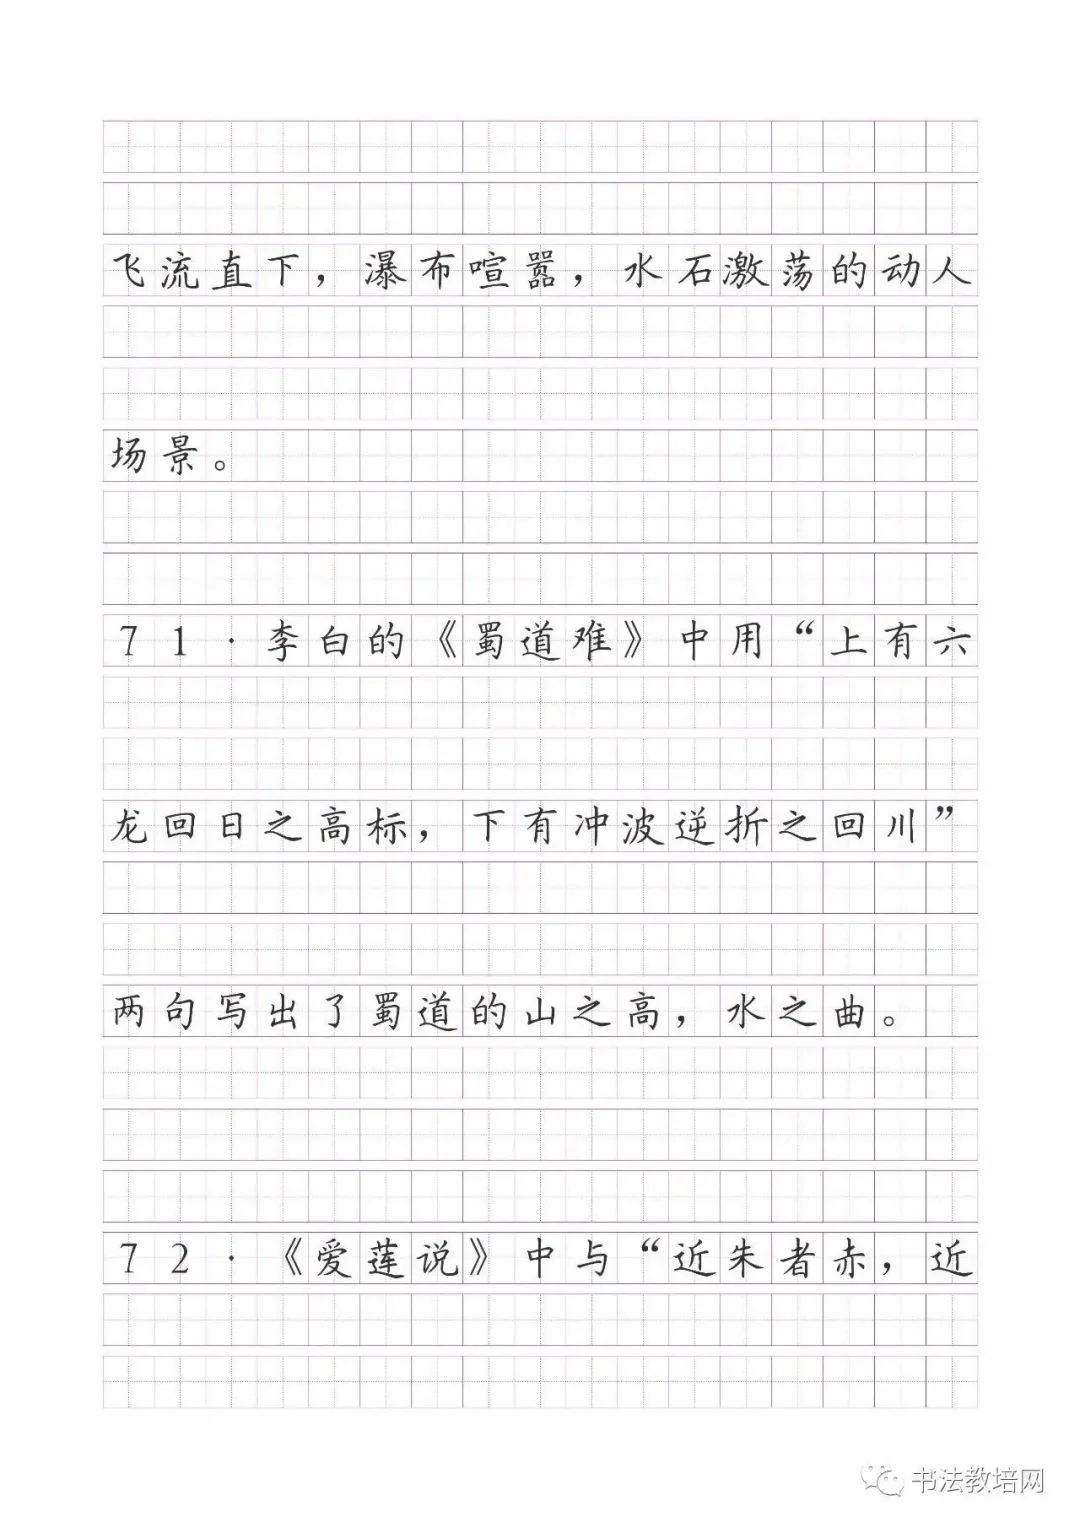 飞流直下，瀑布喧嚣，水石激荡的动人
场景。
71·李白的《蜀道难》中用“上有六
龙回日之高标，下有冲波逆折之回川”
两句写出了蜀道的山之高，水之曲。
72·《爱莲说》中与“近朱者赤，近
书法教培网